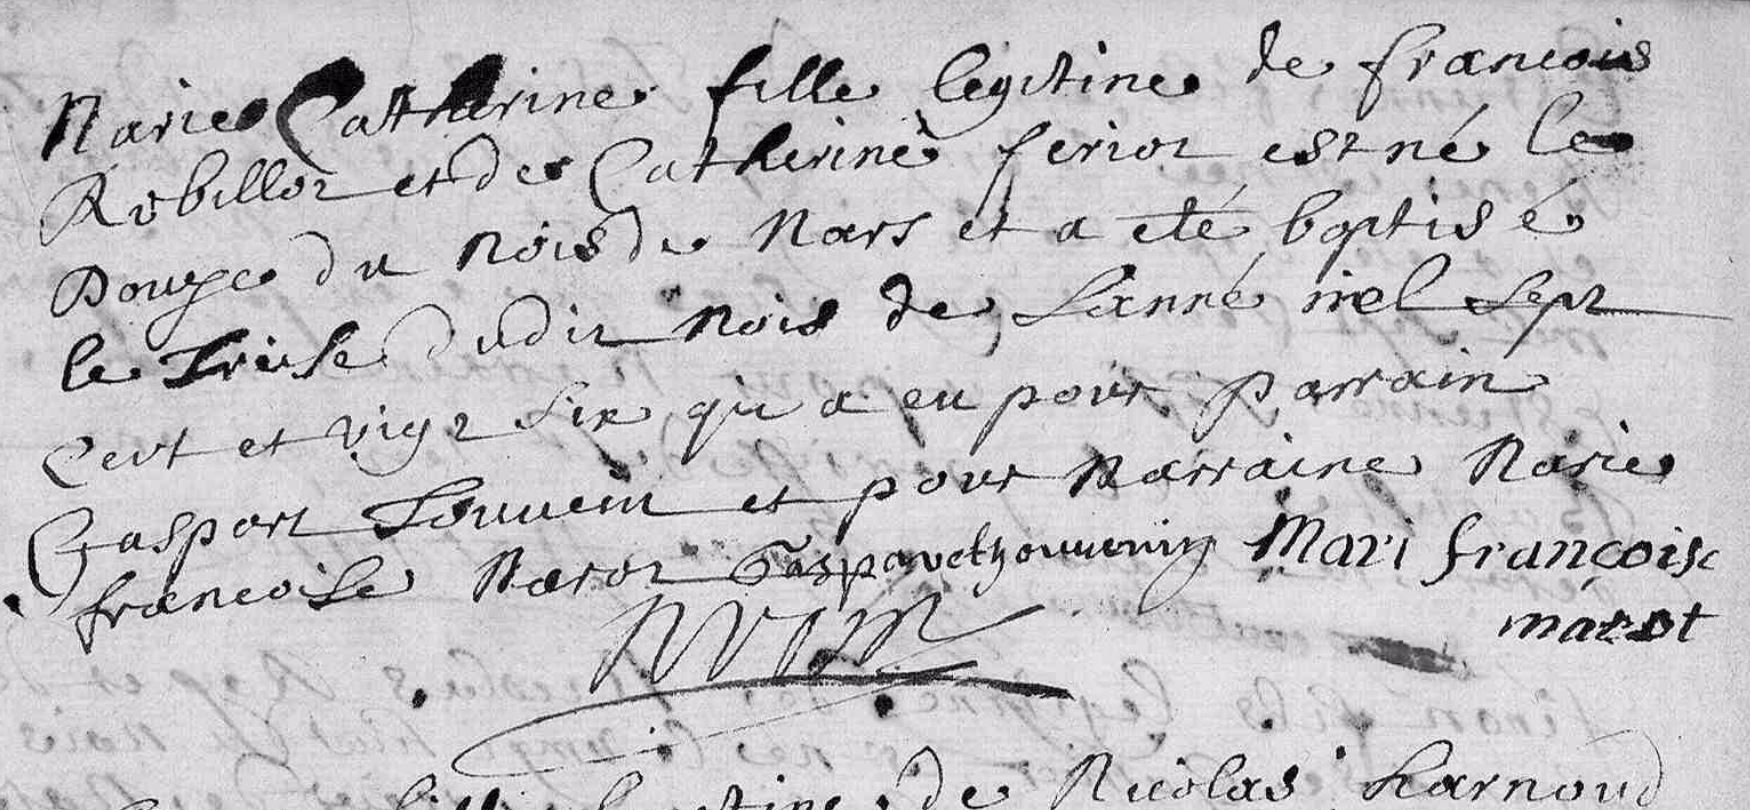 Marie Catherine fille legitine de francois
Robillot et de Catherine feriot est né le
Douze du Mois de Mars et a eté baptisé
le treise dudit Mois de Lanné mel sept
Cent et vigt six qui a eu pour parrain
Gaspart Louuein et pour Marraine Marie
francoise Marot Gaspavet Mari françoise
marot
de Nicolas Larnoud